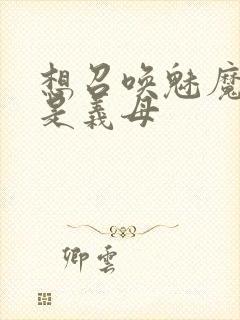 想召唤魅魔
是義母
卿雲